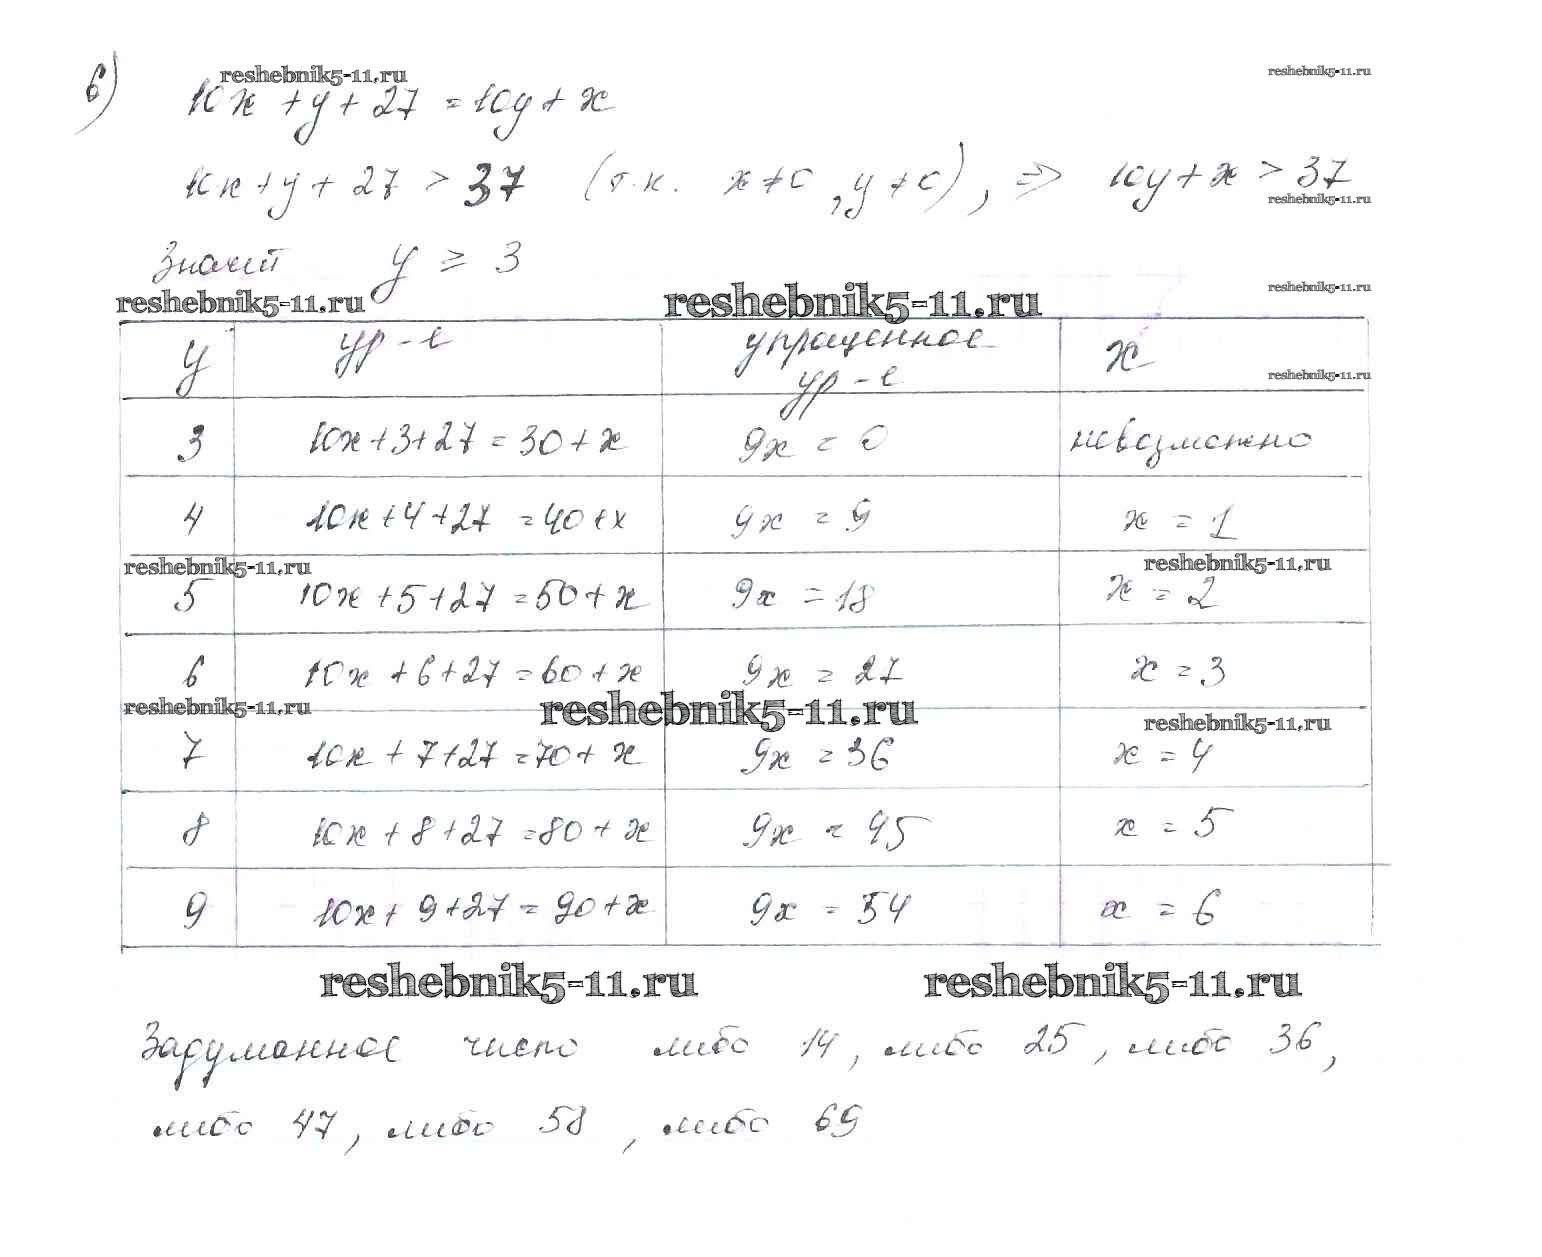 б)
reshebnik5-11.ru
reshebnik5-11.ru
10x + y + 27 = 10y + x
10x + y + 27 > 37 (т.к. x ≠ 0, y ≠ 0), => 10y + x > 37
reshebnik5-11.ru
Значит y ≥ 3
reshebnik5-11.ru
reshebnik5-11.ru
reshebnik5-11.ru
y ур-е упрощенное ур-е x
reshebnik5-11.ru
3 10x+3+27=30+x 9x = 0 невозможно
4 10x+4+27=40+x 9x = 9 x = 1
reshebnik5-11.ru
reshebnik5-11.ru
5 10x+5+27=50+x 9x = 18 x = 2
6 10x+6+27=60+x 9x = 27 x = 3
reshebnik5-11.ru
reshebnik5-11.ru
reshebnik5-11.ru
7 10x+7+27=70+x 9x = 36 x = 4
8 10x+8+27=80+x 9x = 45 x = 5
9 10x+9+27=90+x 9x = 54 x = 6
reshebnik5-11.ru
reshebnik5-11.ru
Задуманное число либо 14, либо 25, либо 36,
либо 47, либо 58, либо 69